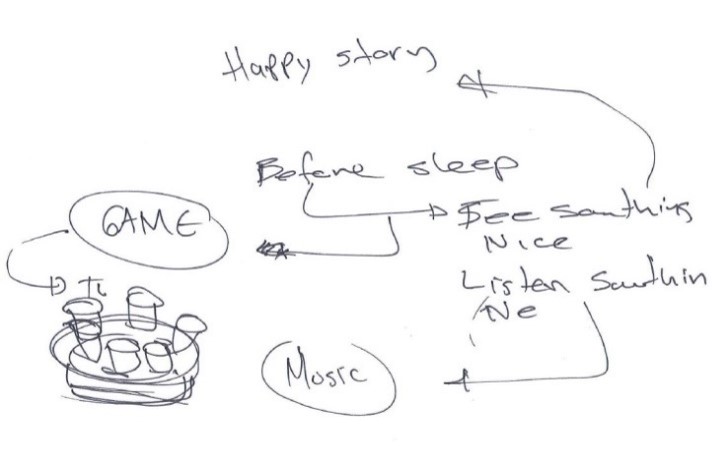 Happy story
Before sleep
GAME
See Somthing
Nice
Listen Somthin
Ne
Mosic